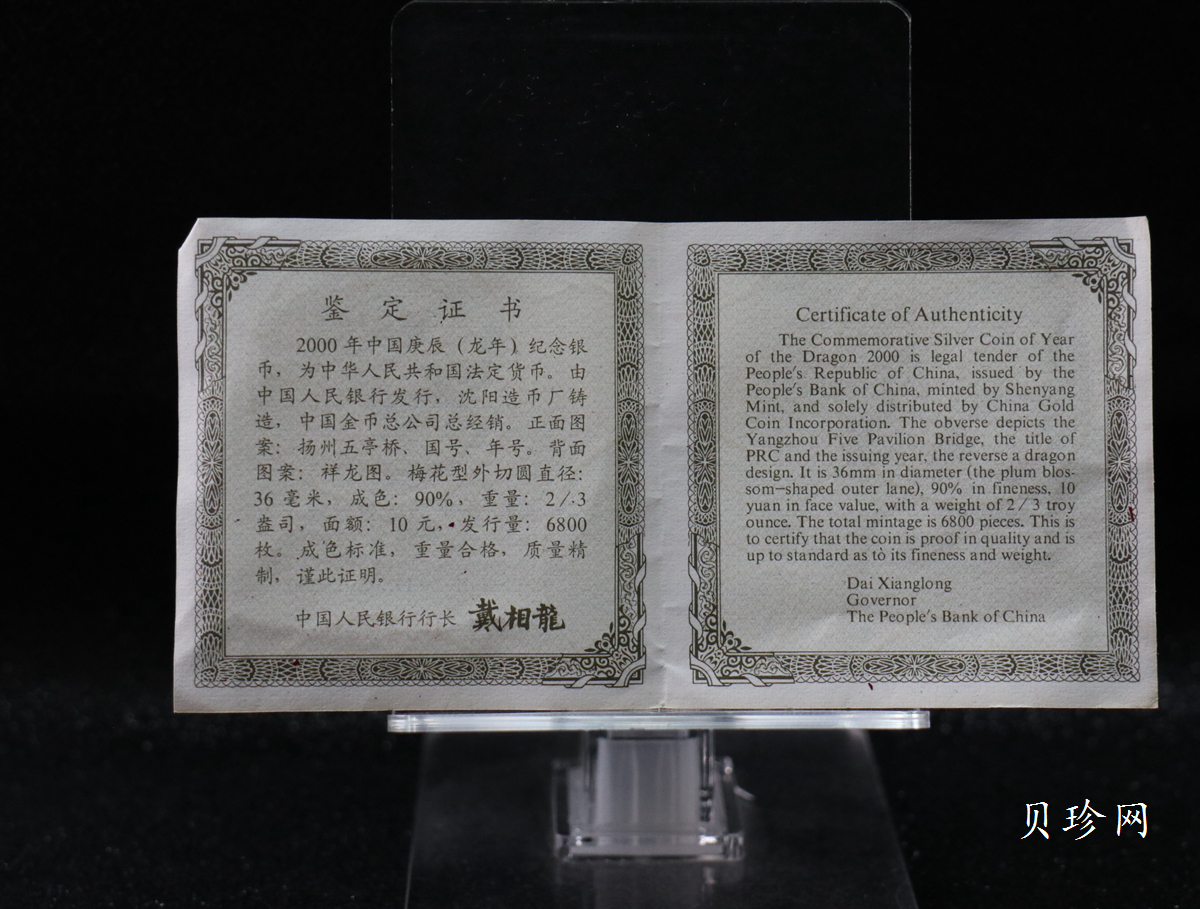 鉴定证书
2000年中国庚辰（龙年）纪念银
币，为中华人民共和国法定货币。由
中国人民银行发行，沈阳造币厂铸
造，中国金币总公司总经销。正面图
案：扬州五亭桥、国号、年号。背面
图案：祥龙图。梅花型外切圆直径：
36毫米，成色：90%，重量：2/3
盎司，面额：10元，发行量：6800
枚。成色标准，重量合格，质量精
制，谨此证明。
中国人民银行行长 戴相龍
Certificate of Authenticity
The Commemorative Silver Coin of Year
of the Dragon 2000 is legal tender of the
People's Republic of China, issued by the
People's Bank of China, minted by Shenyang
Mint, and solely distributed by China Gold
Coin Incorporation. The obverse depicts the
Yangzhou Five Pavilion Bridge, the title of
PRC and the issuing year, the reverse a dragon
design. It is 36mm in diameter (the plum blos-
som-shaped outer lane), 90% in fineness, 10
yuan in face value, with a weight of 2/3 troy
ounce. The total mintage is 6800 pieces. This is
to certify that the coin is proof in quality and is
up to standard as to its fineness and weight.
Dai Xianglong
Governor
The People's Bank of China
贝珍网